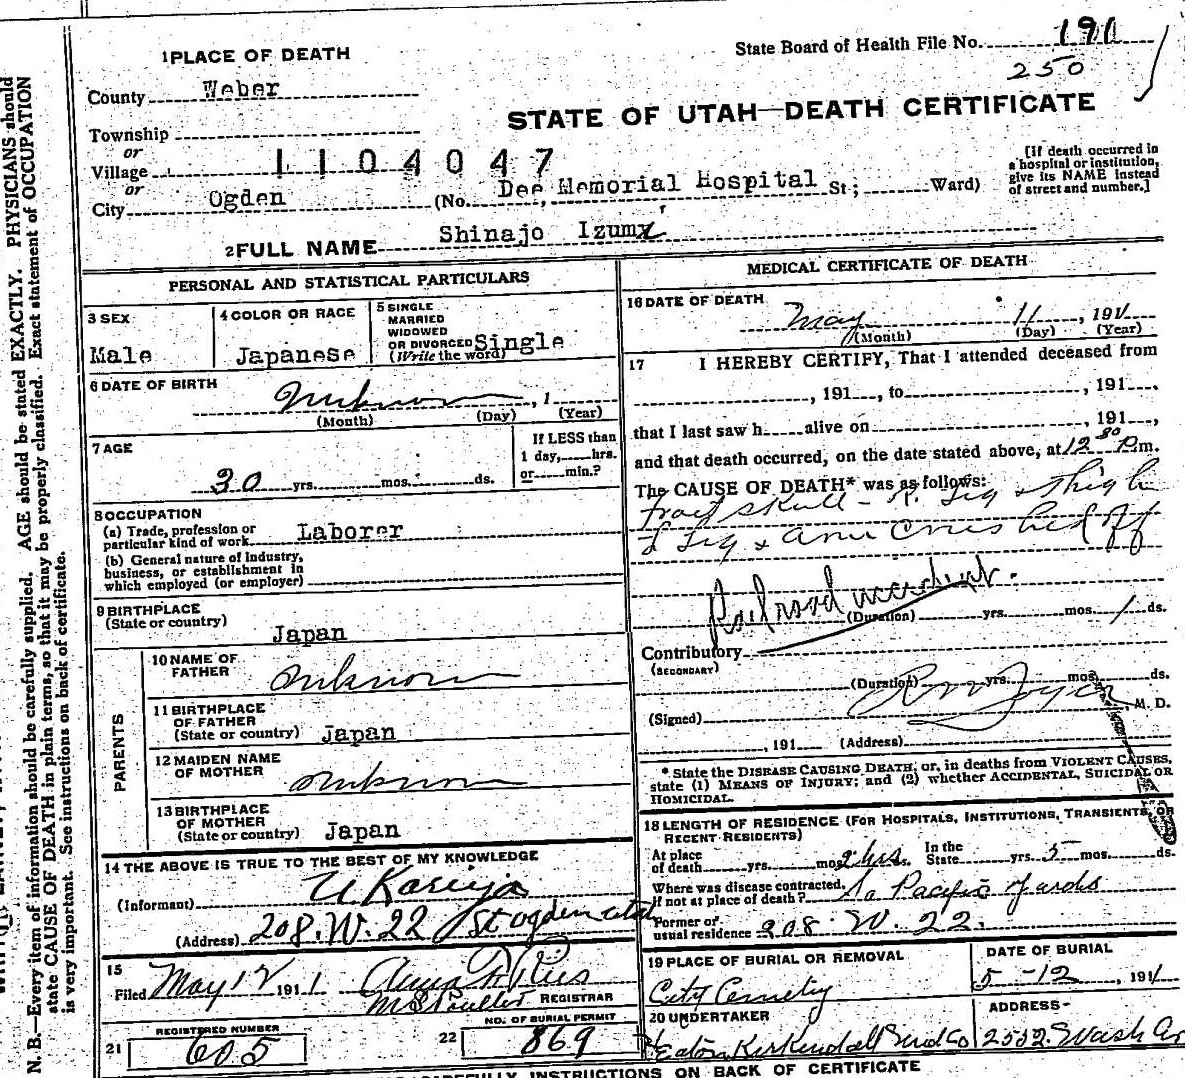 State Board of Health File No. 191
250
1 PLACE OF DEATH
County Weber
STATE OF UTAH—DEATH CERTIFICATE
Township
or
Village
1104047
or
City Ogden (No. Dee Memorial Hospital St; Ward)
[If death occurred in
a hospital or institution,
give its NAME instead
of street and number.]
2 FULL NAME Shinajo Izumi
PERSONAL AND STATISTICAL PARTICULARS
3 SEX
Male
4 COLOR OR RACE
Japanese
5 SINGLE
MARRIED
WIDOWED
OR DIVORCED Single
(Write the word)
6 DATE OF BIRTH
Unknown , 1
(Month) (Day) (Year)
7 AGE
30 yrs. mos. ds.
If LESS than
1 day, hrs.
or min.?
8 OCCUPATION
(a) Trade, profession or
particular kind of work Laborer
(b) General nature of industry,
business, or establishment in
which employed (or employer)
9 BIRTHPLACE
(State or country)
Japan
PARENTS
10 NAME OF
FATHER Unknown
11 BIRTHPLACE
OF FATHER
(State or country) Japan
12 MAIDEN NAME
OF MOTHER Unknown
13 BIRTHPLACE
OF MOTHER
(State or country) Japan
14 THE ABOVE IS TRUE TO THE BEST OF MY KNOWLEDGE
(Informant) U Kariya
(Address) 208. W. 22 St Ogden Utah
15
Filed May 12 1911
REGISTRAR
REGISTERED NUMBER
21 605
NO. OF BURIAL PERMIT
22 869
MEDICAL CERTIFICATE OF DEATH
16 DATE OF DEATH
May 11, 1911
(Month) (Day) (Year)
17 I HEREBY CERTIFY, That I attended deceased from
, 191 , to , 191 ,
that I last saw h alive on , 191 ,
and that death occurred, on the date stated above, at 12 30 P.m.
The CAUSE OF DEATH* was as follows:
Fract skull - R. Leg & Thigh
L Leg & arm Crushed off
Railroad accident.
(Duration) yrs. mos. 1 ds.
Contributory
(SECONDARY)
(Duration) yrs. mos. ds.
(Signed) M. D.
, 191 (Address)
* State the DISEASE CAUSING DEATH; or, in deaths from VIOLENT CAUSES,
state (1) MEANS OF INJURY; and (2) whether ACCIDENTAL, SUICIDAL OR
HOMICIDAL.
18 LENGTH OF RESIDENCE (FOR HOSPITALS, INSTITUTIONS, TRANSIENTS, OR
RECENT RESIDENTS)
At place
of death yrs. mos 2 hrs. In the
State yrs. 5 mos. ds.
Where was disease contracted,
if not at place of death? So Pacific Yards
Former or
usual residence 208 W. 22.
19 PLACE OF BURIAL OR REMOVAL
City Cemetery
DATE OF BURIAL
5-12, 1911
20 UNDERTAKER
Eaton Kirkendall Und Co
ADDRESS
2532 Wash Av
N. B.—Every item of information should be carefully supplied. AGE should be stated EXACTLY. PHYSICIANS should
state CAUSE OF DEATH in plain terms, so that it may be properly classified. Exact statement of OCCUPATION
is very important. See instructions on back of certificate.
CAREFULLY INSTRUCTIONS ON BACK OF CERTIFICATE